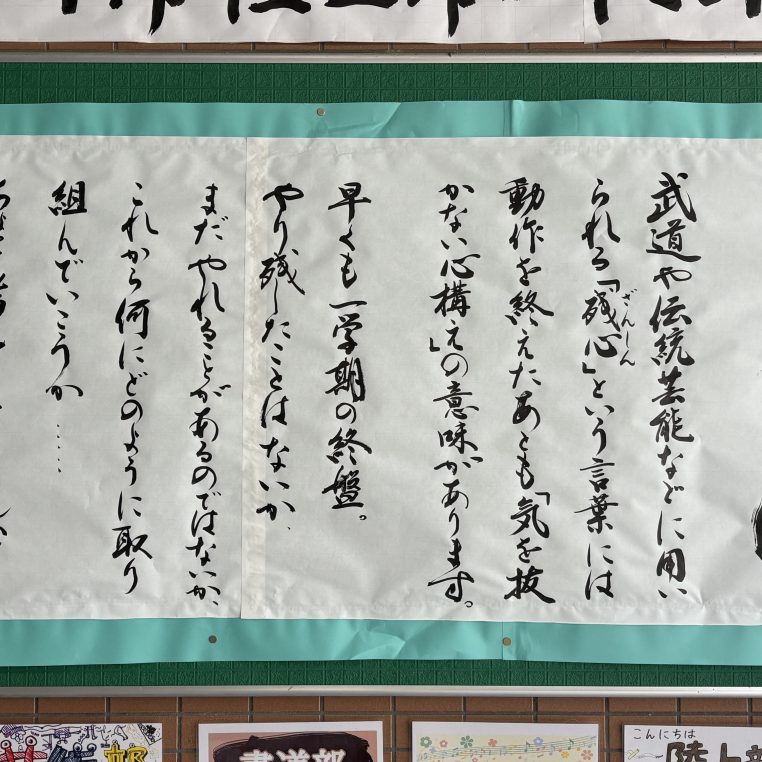 武道や伝統芸能などに用い
られる「残心」という言葉には
ざんしん
動作を終えたあとも「気を抜
かない心構え」の意味があります。
早くも一学期の終盤。
やり残したことはないか、
まだやれることがあるのではないか、
これから何にどのように取り
組んでいこうか……
書道部
こんにちは
陸上部